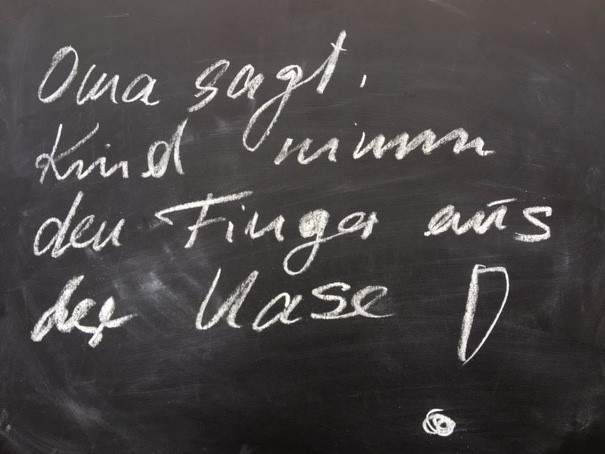 Oma sagt,
Kind nimm
den Finger aus
der Nase !